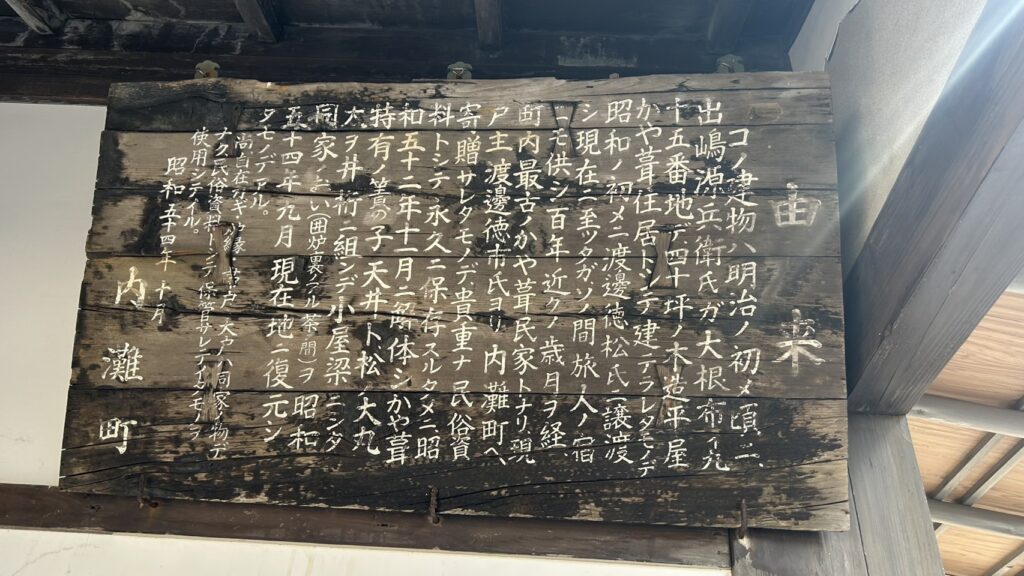 由来
コノ建物ハ明治ノ初メ頃ニ、
出嶋源兵衛氏ガ大根布イ九
十五番地デ四十坪ノ木造平屋
かや葺住居トシテ建テラレタモノデ
昭和ノ初メニ渡邊徳松氏ニ譲渡
シ現在ニ至ッタガソノ間旅人ノ宿
ニモ供シ百年近クノ歳月ヲ経
町内最古ノかや葺民家トナリ現
戸主渡邊徳市氏ヨリ内灘町ヘ
寄贈サレタモノデ貴重ナ民俗資
料トシテ永久ニ保存スルタメニ昭
和五十二年十一月ニ解体シかや葺
特有ノ簀の子天井ト松ノ大丸
太ヲ井桁ニ組ンデ小屋梁ニシタ
同家ノよい(囲炉裏ノアル茶ノ間)ヲ昭和
五十四年九月現在地ニ復元シ
タモノデアル。
戸、大戸ハ同家ノ物デ
ナク民俗資料トシテ保管サレテイタモノヲ
使用シテイル。
昭和五十四年十月
内灘町